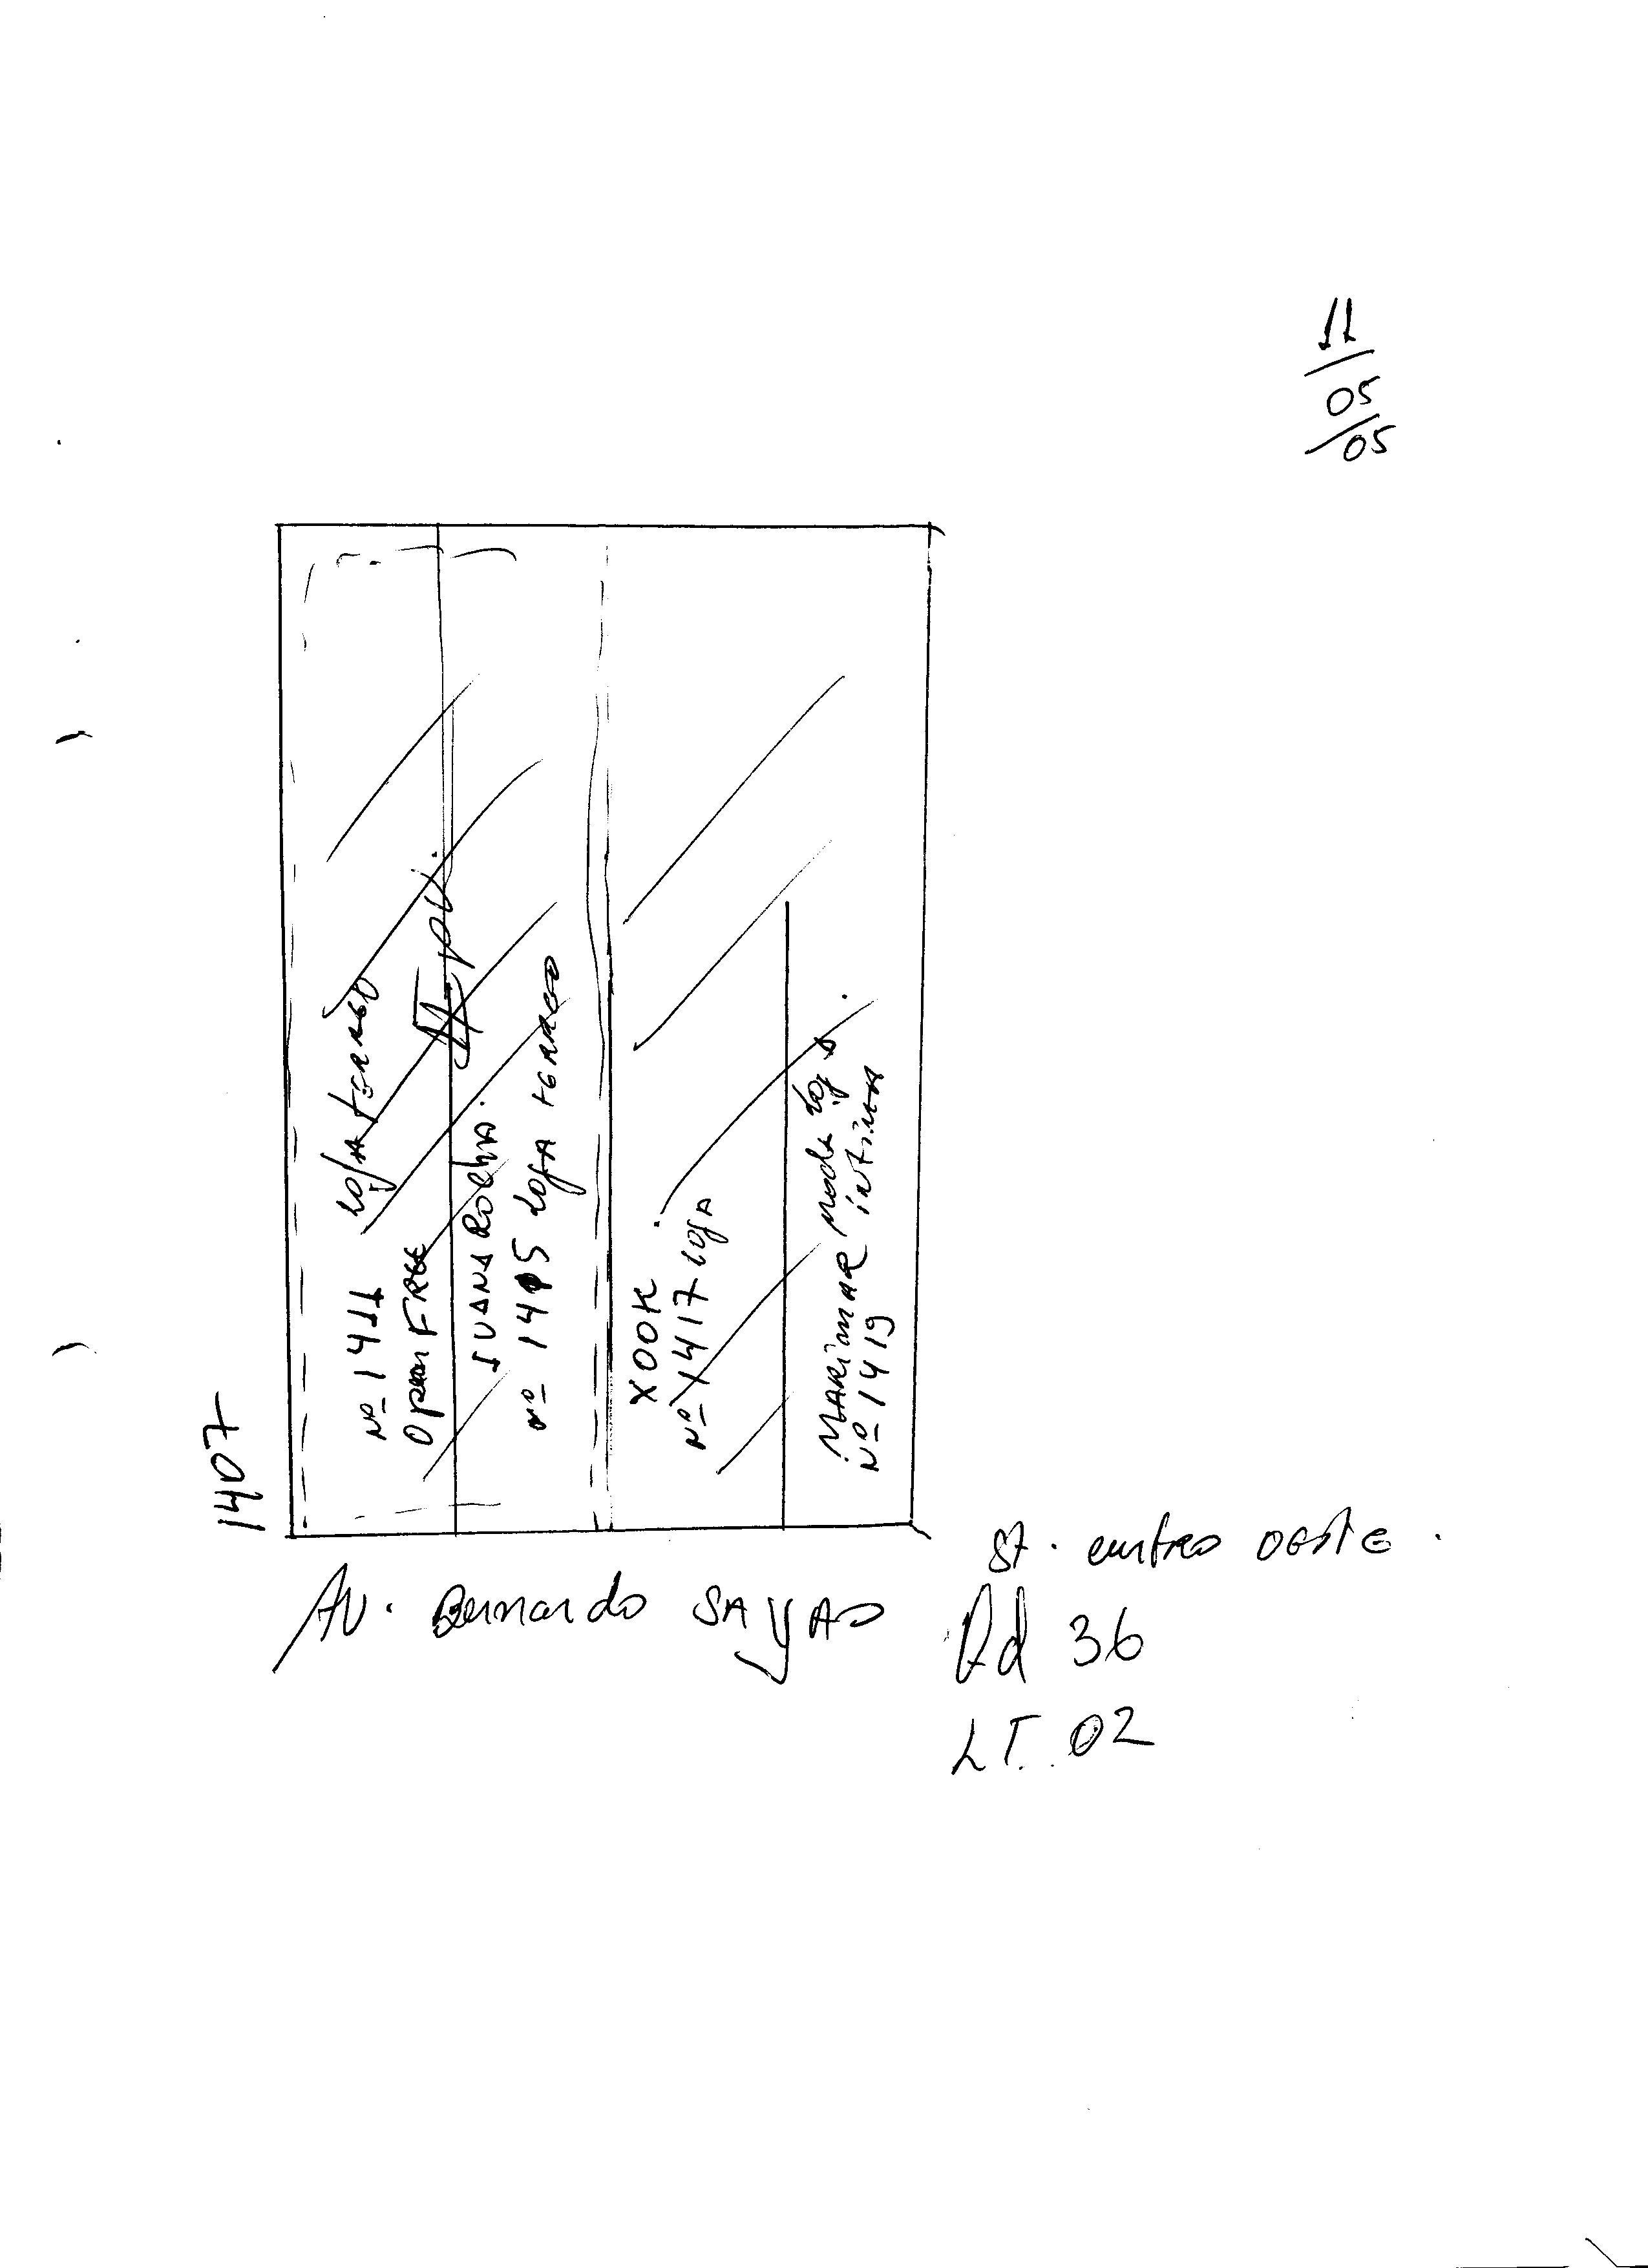 11/05/05
1407
Nº 1411 Loja terreo
Open FREE
IVANA ROCHA.
nº 1415 Loja terreo
XOOK
Nº 1417 Loja
MARimAR Moda
Nº 1419 íntima
Av. Bernardo SAYAO
St. centro OESTE.
Qd 36
LT. 02